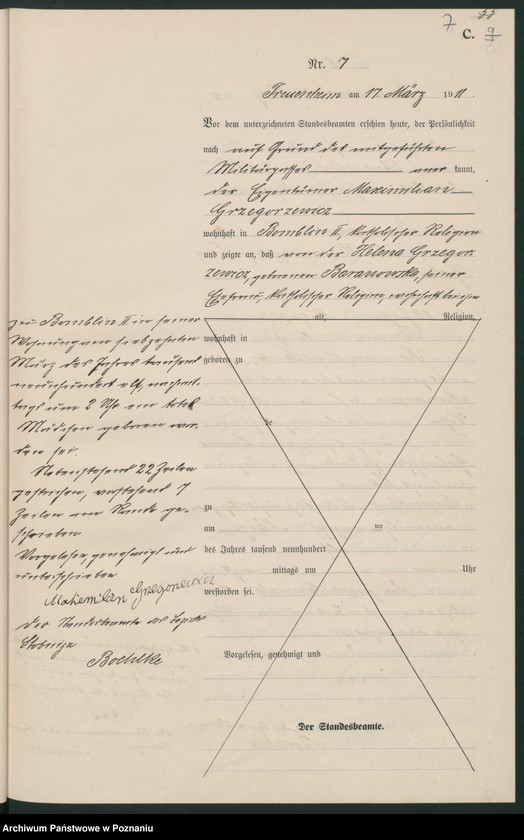 7
C. 9
Nr. 7
Treuenheim am 17 März 1911.
Vor dem unterzeichneten Standesbeamten erschien heute, der Persönlichkeit
nach auf Grund des mitgeführten
Militärpasses anerkannt,
der Eigentümer Maximilian
Grzegorzewicz
wohnhaft in Bomblin II, katholischer Religion
und zeigte an, daß von der Helena Grzegor-
zewicz, geborenen Baranowska, seiner
Ehefrau, katholischer Religion, wohnhaft bei ihm
alt, Religion,
wohnhaft in
geboren zu
de
zu
am um
des Jahres tausend neunhundert
mittags um Uhr
verstorben sei.
Vorgelesen, genehmigt und
Der Standesbeamte.
zu Bomblin II in seiner
Wohnung am siebzehnten
März des Jahres tausend
neunhundert elf, nachmit-
tags um 2 Uhr ein totes
Mädchen geboren wor-
den sei.
Nebenstehend 22 Zeilen
gestrichen, vorstehend 7
Zeilen am Rande ge-
schrieben
Vorgelesen, genehmigt und
unterschrieben
Maksemilan Grzegorzewicz
Der Standesbeamte
Boehlke
Archiwum Państwowe w Poznaniu